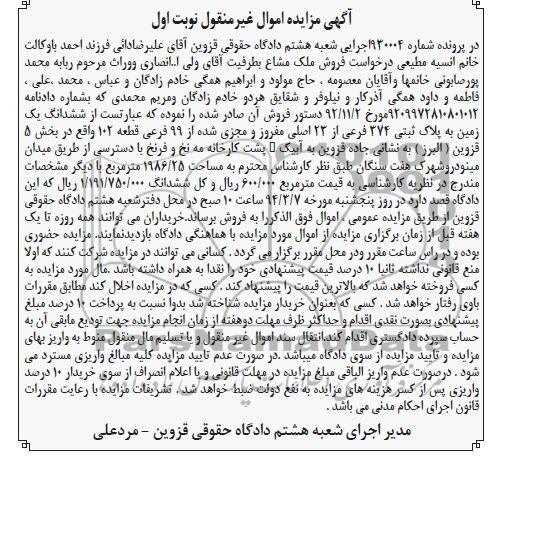 آگهی مزایده اموال غیرمنقول نوبت اول
در پرونده شماره ۹۳۰۰۰۴اجرایی شعبه هشتم دادگاه حقوقی قزوین آقای علیرضادائی فرزند احمد باوکالت
خانم انسیه مطیعی درخواست فروش ملک مشاع بطرفیت آقای ولی ا..انصاری ووراث مرحوم ربابه محمد
پورصابونی خانمها وآقایان معصومه ، حاج مولود و ابراهیم همگی خادم زادگان و عباس ، محمد ،علی ،
فاطمه و داود همگی آذرکار و نیلوفر و شقایق هردو خادم زادگان ومریم محمدی که بشماره دادنامه
۹۲۰۹۹۷۲۸۱۰۸۰۱۰۱۲مورخ ۹۲/۱۱/۲ دستور فروش آن صادر شده را نموده که عبارتست از ششدانگ یک
زمین به پلاک ثبتی ۳۷۴ فرعی از ۲۳ اصلی مفروز و مجزی شده از ۹۹ فرعی قطعه ۱۰۲ واقع در بخش ۵
قزوین ( البرز ) به نشانی جاده قزوین به آبیک پشت کارخانه مه نخ و فرنخ با دسترسی از طریق میدان
مینودروشهرک هفت سنگان طبق نظر کارشناس محترم به مساحت ۱۹۸۶/۲۵ مترمربع با دیگر مشخصات
مندرج در نظریه کارشناسی به قیمت مترمربع ۶۰۰/۰۰۰ ریال و کل ششدانگ ۱/۱۹۱/۷۵۰/۰۰۰ ریال که این
دادگاه قصد دارد در روز پنجشنبه مورخه ۹۴/۲/۷ ساعت ۱۰ صبح در محل دفترشعبه هشتم دادگاه حقوقی
قزوین از طریق مزایده عمومی ، اموال فوق الذکررا به فروش برساند.خریداران می توانند همه روزه تا یک
هفته قبل از زمان برگزاری مزایده از اموال مورد مزایده با هماهنگی دادگاه بازدیدنمایند. مزایده حضوری
بوده و در راس ساعت مقرر ودر محل مقرر برگزار می گردد . کسانی می توانند در مزایده شرکت کنند که اولا
منع قانونی نداشته ثانیا ۱۰ درصد قیمت پیشنهادی خود را نقدا به همراه داشته باشد .مال مورد مزایده به
کسی فروخته خواهد شد که بالاترین قیمت را پیشنهاد کند . کسی که در مزایده اخلال کند مطابق مقررات
باوی رفتار خواهد شد . کسی که بعنوان خریدار مزایده شناخته شد بدوا نسبت به پرداخت ۱۰ درصد مبلغ
پیشنهادی بصورت نقدی اقدام و حداکثر ظرف مهلت دوهفته از زمان انجام مزایده جهت تودیع مابقی آن به
حساب سپرده دادگستری اقدام کند.انتقال سند اموال غیر منقول و یا تسلیم مال منقول منوط به واریز بهای
مزایده و تایید مزایده از سوی دادگاه میباشد .در صورت عدم تایید مزایده کلیه مبالغ واریزی مسترد می
شود . درصورت عدم واریز الباقی مبلغ مزایده در مهلت قانونی و یا اعلام انصراف از سوی خریدار ۱۰ درصد
واریزی پس از کسر هزینه های مزایده به نفع دولت ضبط خواهد شد . تشریفات مزایده با رعایت مقررات
قانون اجرای احکام مدنی می باشد .
مدیر اجرای شعبه هشتم دادگاه حقوقی قزوین - مردعلی
ParsNamadData